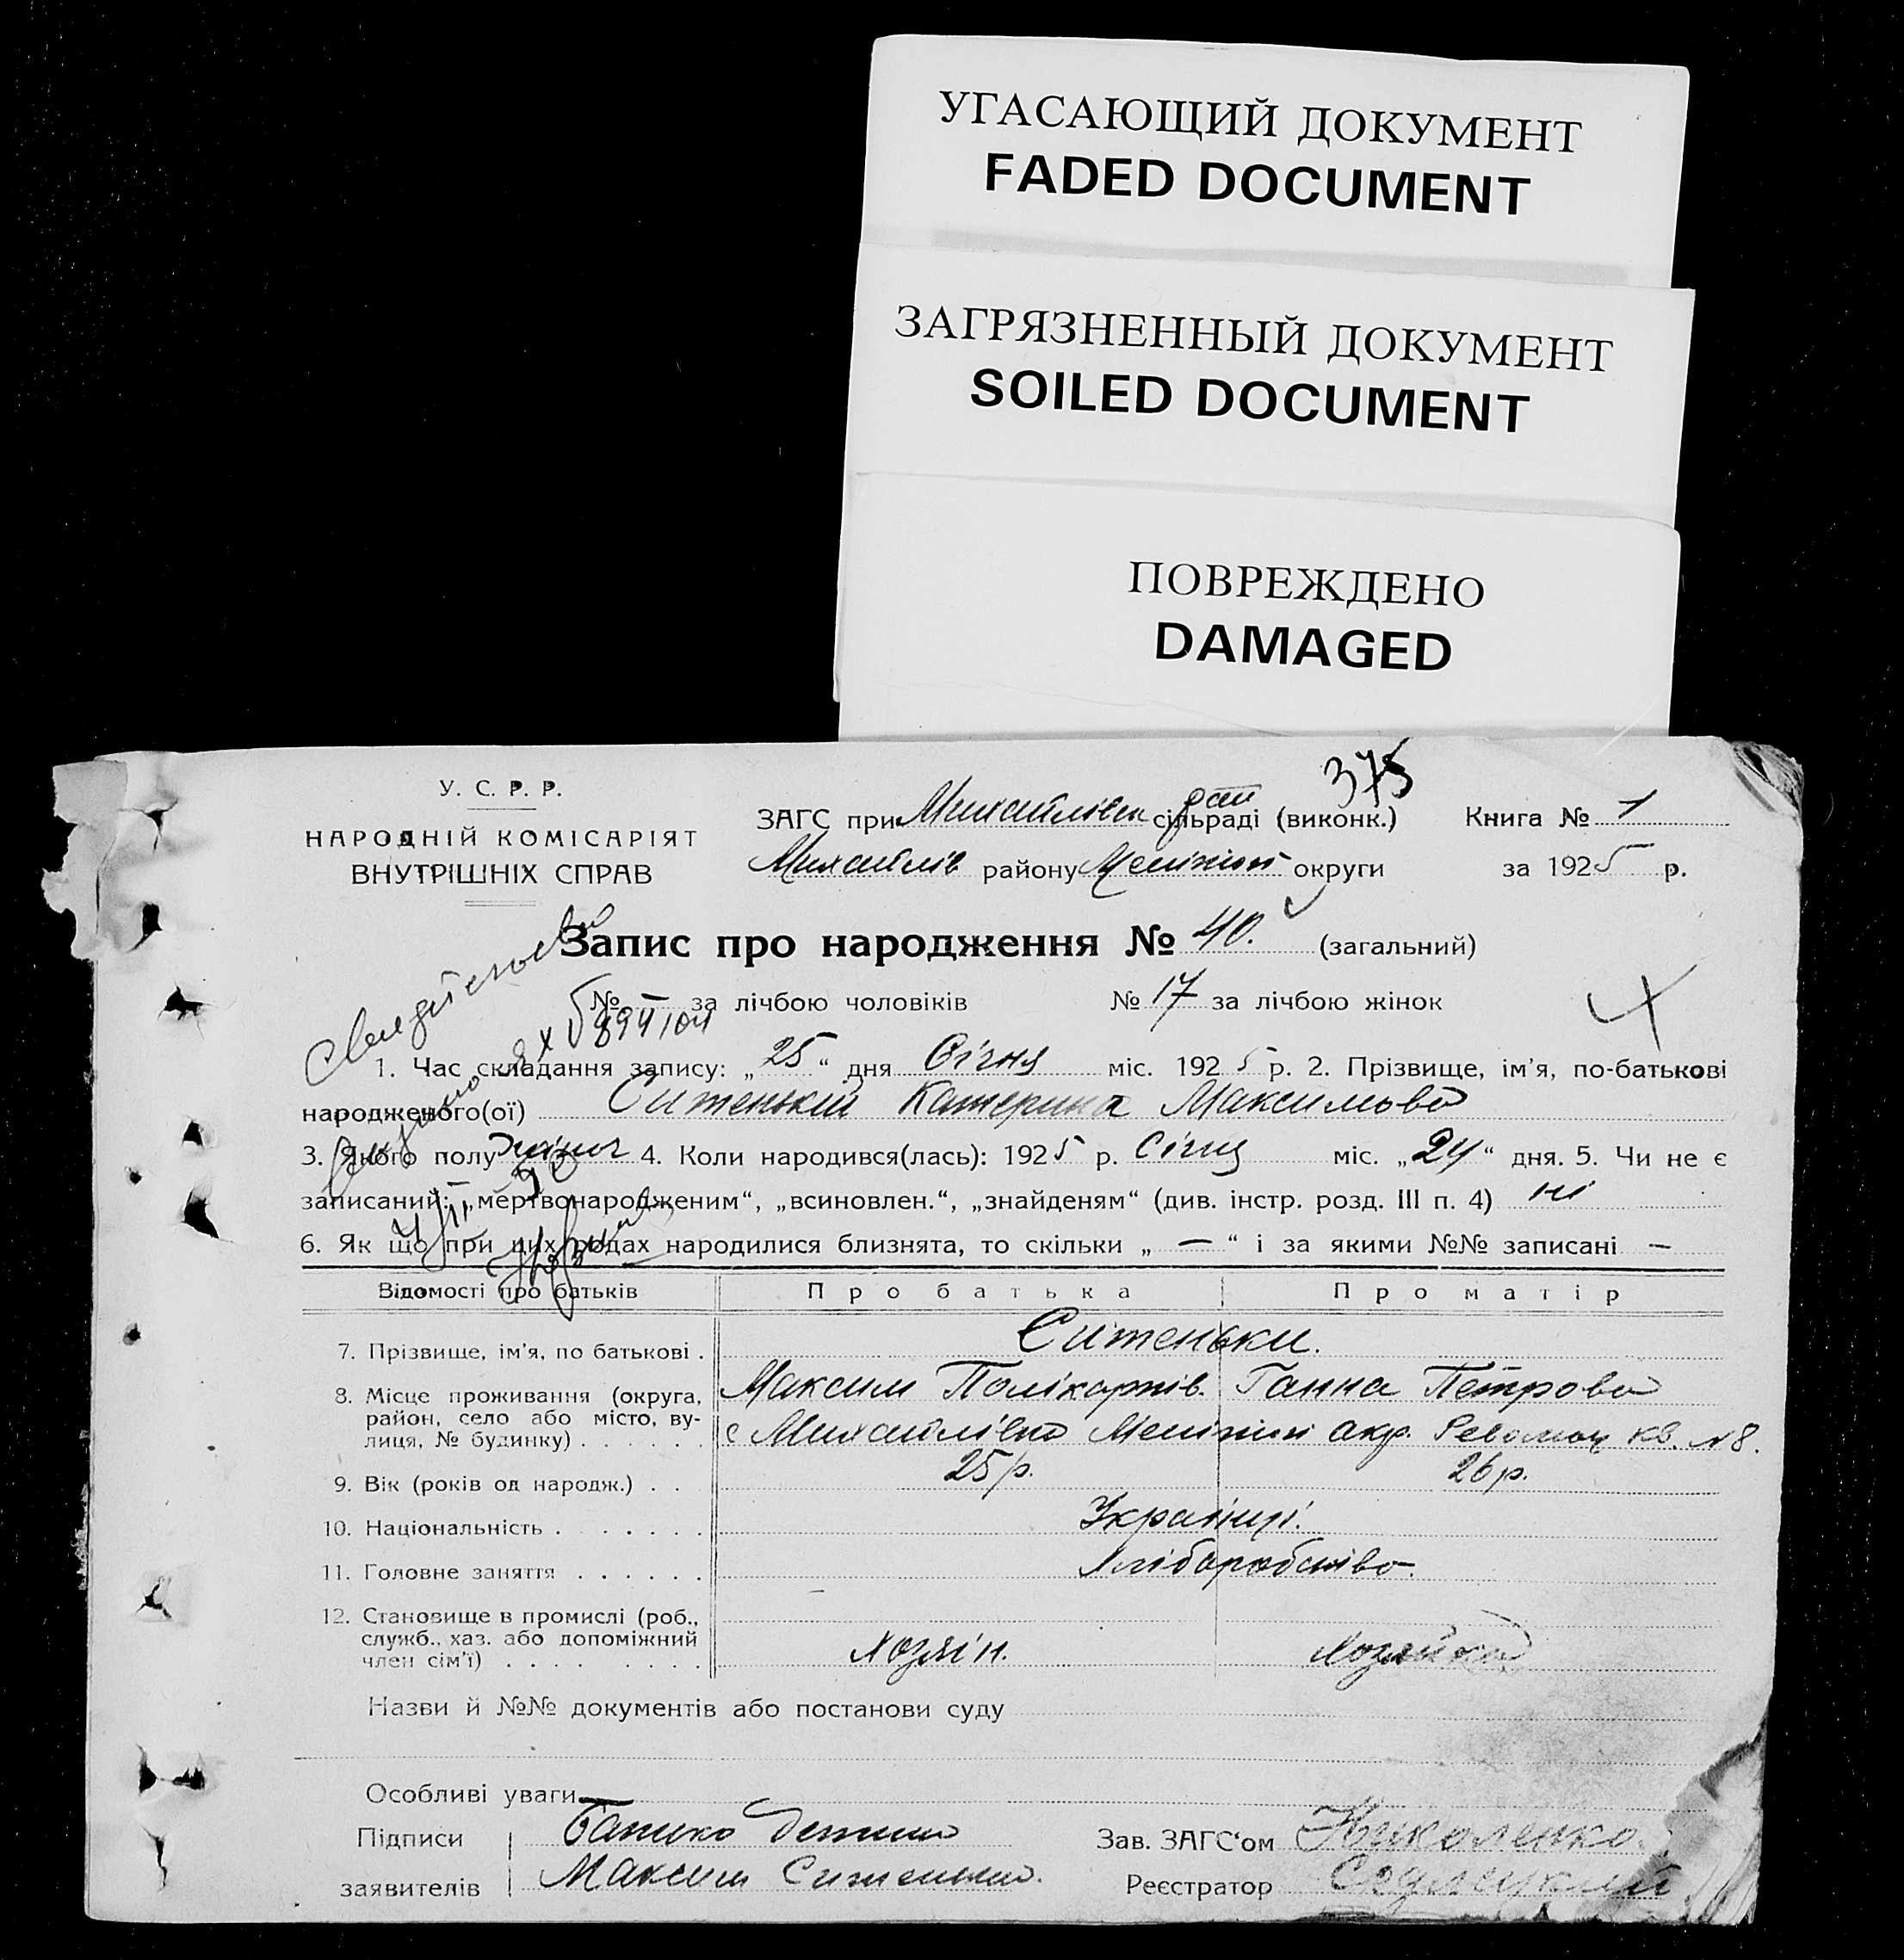 УГАСАЮЩИЙ ДОКУМЕНТ
FADED DOCUMENT
ЗАГРЯЗНЕННЫЙ ДОКУМЕНТ
SOILED DOCUMENT
ПОВРЕЖДЕНО
DAMAGED
375
У. С. Р. Р.
НАРОДНІЙ КОМІСАРІЯТ
ВНУТРІШНІХ СПРАВ
ЗАГС при Михайлівск рай сільраді (виконк.) Книга № 1
Михайлів району Меліпіл округи за 1925 р.
Запис про народження № 40. (загальний)
№ — за лічбою чоловіків № 17 за лічбою жінок
1. Час складання запису: „25“ дня Січня міс. 1925 р. 2. Прізвище, ім'я, по-батькові
народженого(ої) Ситенький Катерина Максимова
3. Якого полу жіноч 4. Коли народився(лась): 1925 р. Січня міс. „24“ дня. 5. Чи не є
записаний: „мертвонародженим“, „всиновлен.“, „знайденям“ (див. інстр. розд. III п. 4) ні
6. Як що при цих родах народилися близнята, то скільки „ — “ і за якими №№ записані —
Відомості про батьків Про батька Про матір
7. Прізвище, ім'я, по батькові . Ситеньки.
Максим Полікарпів. Ганна Петрова
8. Місце проживання (округа,
район, село або місто, ву-
лиця, № будинку) . . . . . . с Михайлівка Меліпіл окр. Революц кв. № 8.
9. Вік (років од народж.) . . 25 р. 26 р.
10. Національність . . . . . . Українці.
11. Головне заняття . . . . . . Хліборобство.
12. Становище в промислі (роб.,
служб., хаз. або допоміжний
член сім'ї) . . . . . . . . Хозяїн. Хозяйка
Назви й №№ документів або постанови суду
Особливі уваги
Підписи Батько дитини Зав. ЗАГС'ом Николенко
заявителів Максим Ситенький. Реєстратор Седлецкий